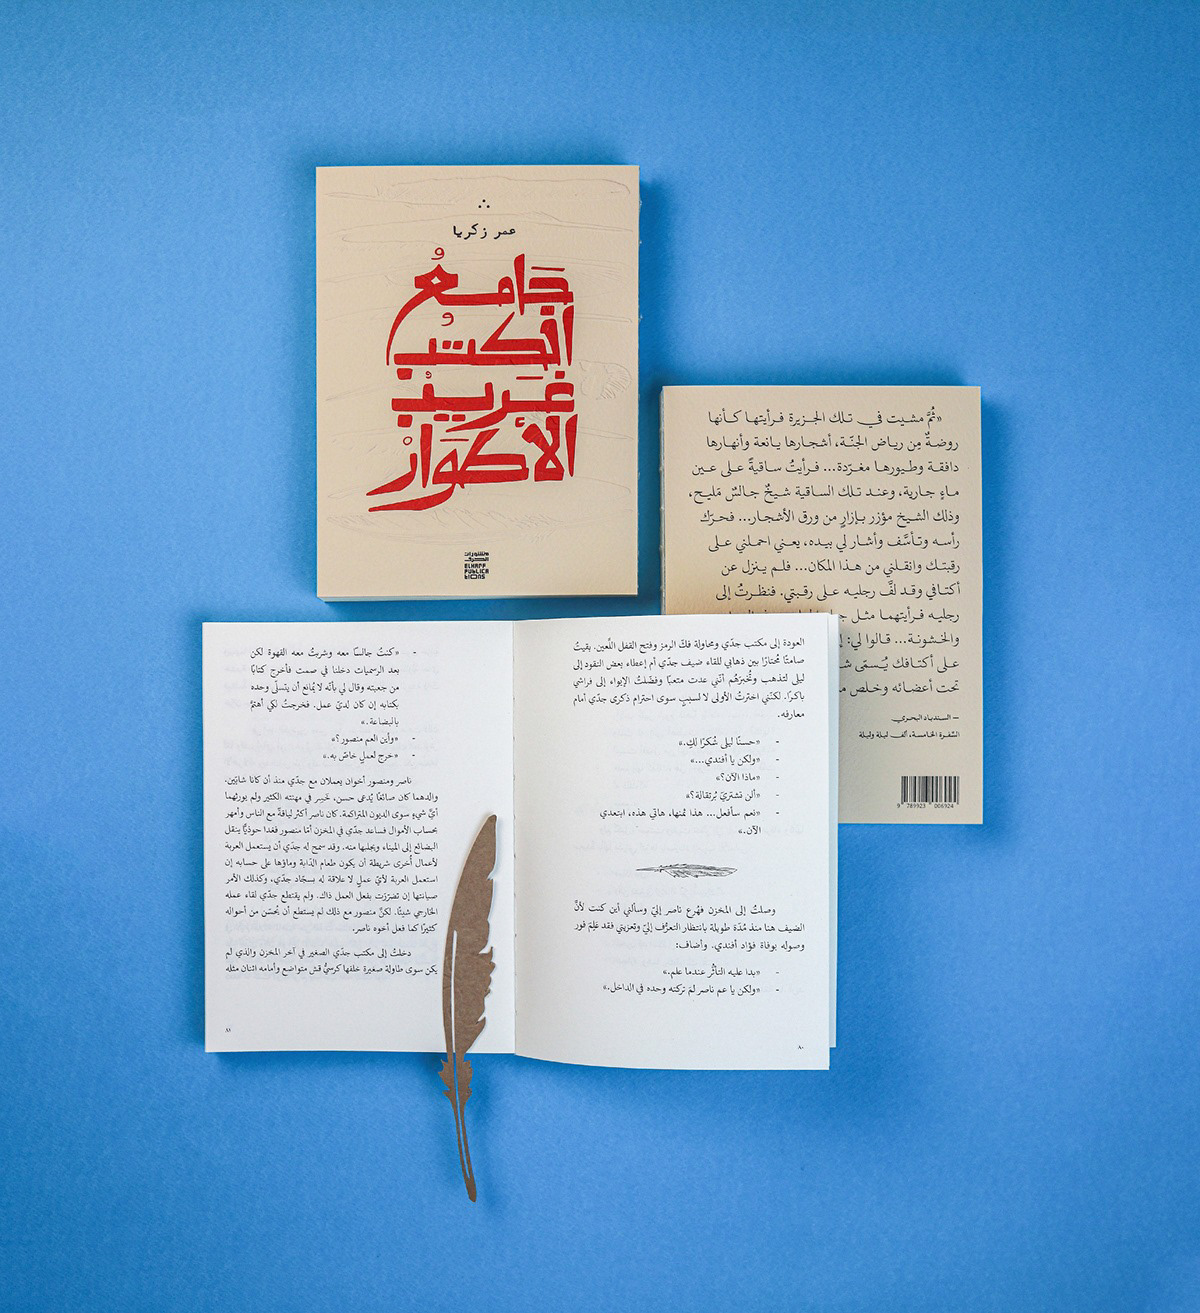 ∴
عمر زكريا
جَامعُ
الكُتب
غَريبْ
الأطوارْ
منشورات
الخرف
ELHARF
PUBLICA
tIONS
«ثُمَّ مشيت في تلك الجزيرة فرأيتها كأنها
روضةٌ مِن رياض الجنّة، أشجارها يانعة وأنهارها
دافقة وطيورها مغرّدة... فرأيتُ ساقيةً على عين
ماءٍ جارية، وعند تلك الساقية شيخٌ جالسٌ مَليح،
وذلك الشيخ مؤزر بإزارٍ من ورق الأشجار... فحرّك
رأسه وتأسَّف وأشار لي بيده، يعني احملني على
رقبتك وانقلني من هذا المكان... فلم ينزل عن
أكتافي وقد لفَّ رجليه على رقبتي. فنظرتُ إلى
رجليه فرأيتهما مثل
والخشونة... قالوا لي:
على أكتافك يُسمّى
تحت أعضائه وخلص
– السندباد البحري
السّفرة الخامسة، ألف ليلة وليلة
9 789923 006924
العودة إلى مكتب جدّي ومحاولة فكّ الرمز وفتح القفل اللّعين. بقيتُ
صامتًا مُحتارًا بين ذهابي للقاء ضيف جدّي أم إعطاء بعض النقود إلى
ليلى لتذهب وتُخبرَهُم أنّني عدت متعبًا وفضّلتُ الإيواء إلى فراشي
باكرًا. لكنّني اخترتُ الأولى لا لسببٍ سوى احترام ذكرى جدّي أمام
معارفه.
- «حسنًا ليلى شُكرًا لكِ.»
- «ولكن يا أفندي...»
- «ماذا الآن؟»
- «ألن تشتريَ بُرتقالة؟»
- «نعم سأفعل... هذا ثمنها، هاتي هذه، ابتعدي
الآن.»
وصلتُ إلى المخزن فهُرع ناصر إليّ وسألني أين كنت لأنَّ
الضيف هنا منذ مُدّة طويلة بانتظار التعرُّف إليّ وتعزيتي فقد عَلِمَ فور
وصوله بوفاة فؤاد أفندي. وأضاف:
- «بدا عليه التأثُر عندما علم.»
- «ولكن يا عم ناصر لمَ تركته وحده في الداخل.»
٨٠
- «كنتُ جالسًا معه وشربتُ معه القهوة لكن
بعد الرسميات دخلنا في صمت فأخرج كتابًا
من جعبته وقال لي بأنّه لا يُمانع أن يتسلّى وحده
بكتابه إن كان لديّ عمل. فخرجتُ لكي أهتمَّ
بالبضاعة.»
- «وأين العم منصور؟»
- «خرج لعملٍ خاصّ به.»
ناصر ومنصور أخوان يعملان مع جدّي منذ أن كانا شابّين.
والدهما كان صائغًا يُدعى حسن، خَسِر في مهنته الكثير ولم يورثهما
أيَّ شيءٍ سوى الديون المتراكمة. كان ناصر أكثر لباقةً مع الناس وأمهر
بحساب الأموال فساعد جدّي في المخزن أمّا منصور فغدا حوذيًّا ينقل
البضائع إلى الميناء ويجلبها منه. وقد سمح له جدّي أن يستعمل العربة
لأعمال أُخرى شريطة أن يكون طعام الدّابة وماؤها على حسابه إن
استعمل العربة لأيّ عملٍ لا علاقة له بسجّاد جدّي، وكذلك الأمر
صيانتها إن تضرّرت بفعل العمل ذاك. ولم يقتطع جدّي لقاء عمله
الخارجي شيئًا. لكنَّ منصور مع ذلك لم يستطع أن يُحسّن من أحواله
كثيرًا كما فعل أخوه ناصر.
دخلتُ إلى مكتب جدّي الصغير في آخر المخزن والذي لم
يكن سوى طاولة صغيرة خلفها كرسيُّ قش متواضع وأمامه اثنان مثله
٨١